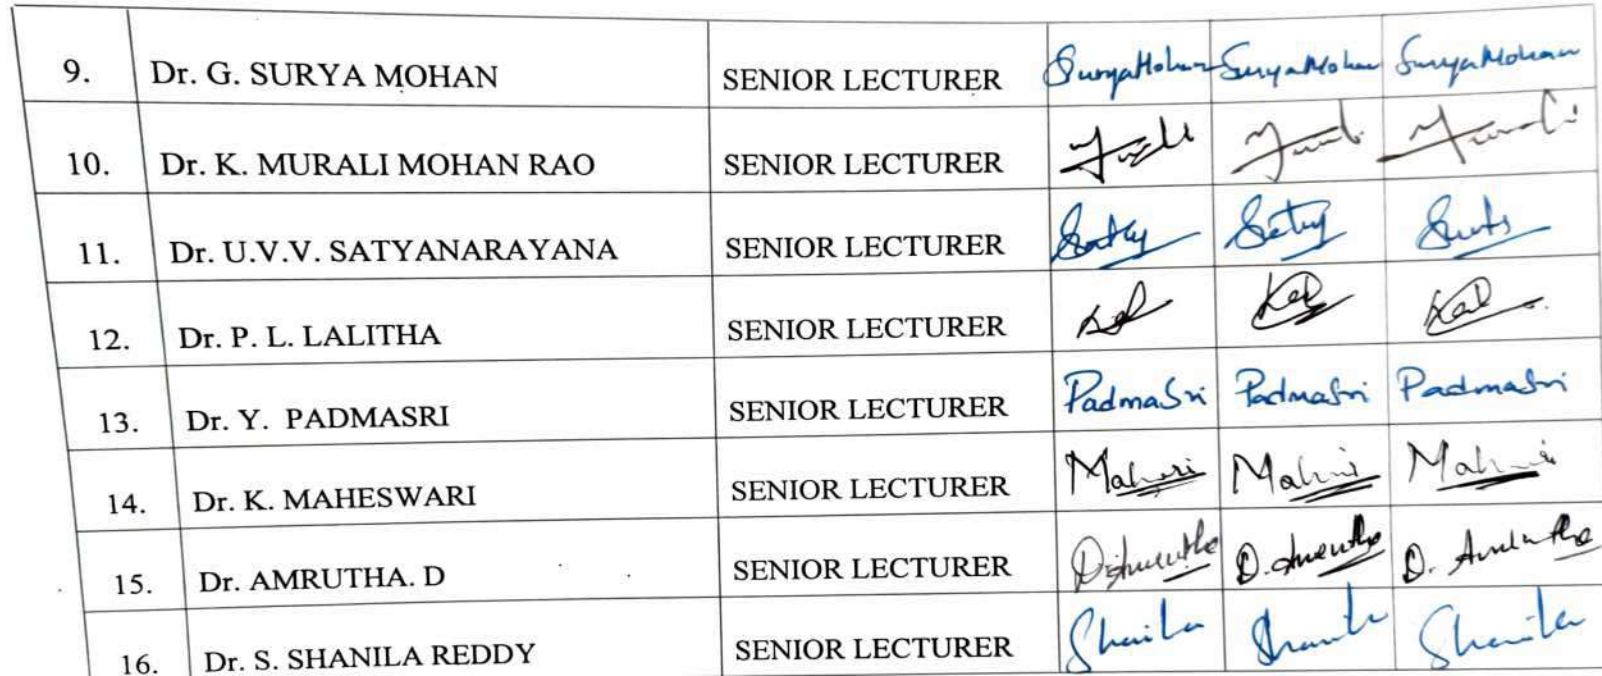 9. Dr. G. SURYA MOHAN SENIOR LECTURER SuryaMohan SuryaMohan SuryaMohan
10. Dr. K. MURALI MOHAN RAO SENIOR LECTURER
11. Dr. U.V.V. SATYANARAYANA SENIOR LECTURER Saty Saty
12. Dr. P. L. LALITHA SENIOR LECTURER
13. Dr. Y. PADMASRI SENIOR LECTURER PadmaSri PadmaSri PadmaSri
14. Dr. K. MAHESWARI SENIOR LECTURER
15. Dr. AMRUTHA. D SENIOR LECTURER D. Amrutha D. Amrutha D. Amrutha
16. Dr. S. SHANILA REDDY SENIOR LECTURER Shanila Shanila Shanila